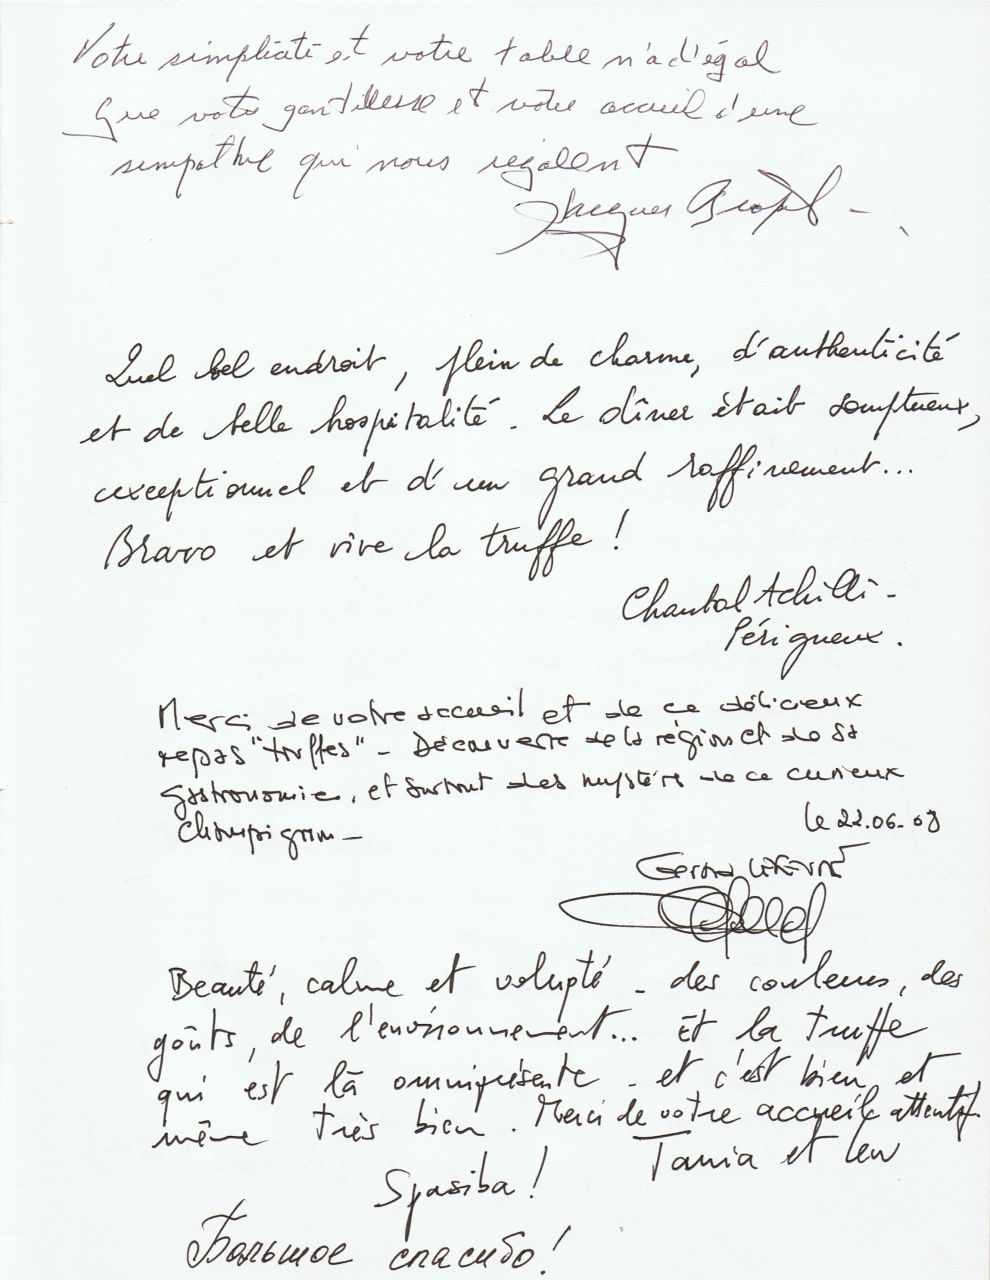 Votre simplicité et votre table n'a d'égal
Que votre gentillesse et votre accueil d'une
sympathie qui nous régalent
Jacques
Quel bel endroit, plein de charme, d'authenticité
et de belle hospitalité. Le dîner était somptueux,
exceptionnel et d'un grand raffinement...
Bravo et vive la truffe !
Chantal Achilli -
Périgueux.
Merci de votre accueil et de ce délicieux
repas "truffes" - Découverte de la région et de sa
gastronomie, et surtout des mystères de ce curieux
champignon -
le 22.06.08
Beauté, calme et volupté - des couleurs, des
goûts, de l'environnement... Et la truffe
qui est là omniprésente - et c'est bien et
même très bien. Merci de votre accueil attentif.
Tania et
Spasiba !
Большое спасибо!